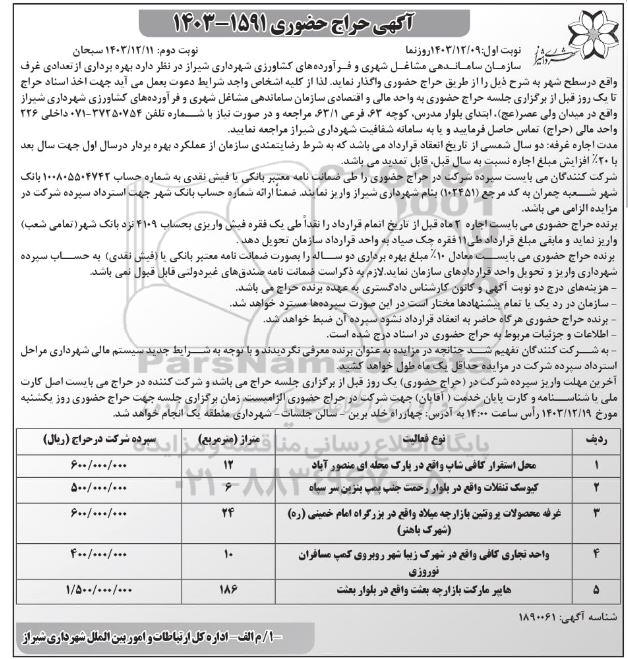 آگهی حراج حضوری ۱۵۹۱-۱۴۰۳
نوبت اول:۱۴۰۳/۱۲/۰۹روزنما نوبت دوم: ۱۴۰۳/۱۲/۱۱ سبحان
سازمان ساماندهی مشاغل شهری و فرآورده‌های کشاورزی شهرداری شیراز در نظر دارد بهره برداری از تعدادی غرف
واقع درسطح شهر به شرح ذیل را از طریق حراج حضوری واگذار نماید. لذا از کلیه اشخاص واجد شرایط دعوت بعمل می آید جهت اخذ اسناد حراج
تا یک روز قبل از برگزاری جلسه حراج حضوری به واحد مالی و اقتصادی سازمان ساماندهی مشاغل شهری و فرآورده‌های کشاورزی شهرداری شیراز
واقع در میدان ولی عصر(عج)، ابتدای بلوار مدرس، کوچه ۶۳، فرعی ۶۳/۱، مراجعه و در صورت نیاز با شماره تلفن ۳۷۲۵۰۷۵۴-۰۷۱ داخلی ۲۲۶
واحد مالی (حراج) تماس حاصل فرمایید و یا به سامانه شفافیت شهرداری شیراز مراجعه نمایید.
مدت اجاره غرفه: دو سال شمسی از تاریخ انعقاد قرارداد می باشد که به شرط رضایتمندی سازمان از عملکرد بهره بردار درسال اول جهت سال بعد
با ۲۰٪ افزایش مبلغ اجاره نسبت به سال قبل، قابل تمدید می باشد.
شرکت کنندگان می بایست سپرده شرکت در حراج حضوری را طی ضمانت نامه معتبر بانکی یا فیش نقدی به شماره حساب ۱۰۰۸۰۵۵۰۴۷۴۲ بانک
شهر شعبه چمران به کد مرجع (۱۰۲۴۵۱) بنام شهرداری شیراز واریز نمایند. ضمناً ارائه شماره حساب بانک شهر جهت استرداد سپرده شرکت در
مزایده الزامی می باشد.
برنده حراج حضوری می بایست اجاره ۲ ماه قبل از تاریخ اتمام قرارداد را نقداً طی یک فقره فیش واریزی بحساب ۴۱۰۹ نزد بانک شهر(تمامی شعب)
واریز نماید و مابقی مبلغ قرارداد طی۱۱ فقره چک صیاد به واحد قرارداد سازمان تحویل دهد.
برنده حراج حضوری می بایست معادل ۱۰٪ مبلغ بهره برداری دو ساله را بصورت ضمانت نامه معتبر بانکی یا (فیش نقدی) به حساب سپرده
شهرداری واریز و تحویل واحد قراردادهای سازمان نماید.لازم به ذکر است ضمانت نامه صندق‌های غیردولتی قابل قبول نمی باشد.
- هزینه‌های درج دو نوبت آگهی و کانون کارشناس دادگستری به عهده برنده حراج می باشد.
- سازمان در رد یک یا تمام پیشنهادها مختار است در این صورت سپرده‌ها مسترد خواهد شد.
- برنده حراج حضوری هرگاه حاضر به انعقاد قرارداد نشود سپرده آن ضبط خواهد شد.
- اطلاعات و جزئیات مربوط به حراج حضوری در اسناد درج شده است.
- به شرکت کنندگان تفهیم شد چنانچه در مزایده به عنوان برنده معرفی نگردیدند و با توجه به شرایط جدید سیستم مالی شهرداری مراحل
استرداد سپرده شرکت در مزایده حداقل یک ماه طول خواهد کشید.
آخرین مهلت واریز سپرده شرکت در (حراج حضوری) یک روز قبل از برگزاری جلسه حراج می باشد و شرکت کننده در حراج می بایست اصل کارت
ملی یا شناسنامه و کارت پایان خدمت (آقایان) جهت شرکت در حراج حضوری الزامیست. زمان برگزاری جلسه جهت حراج حضوری روز یکشنبه
مورخ ۱۴۰۳/۱۲/۱۹ رأس ساعت ۱۴:۰۰ به آدرس: چهارراه خلد برین - سالن جلسات - شهرداری منطقه یک انجام خواهد شد.
ردیف نوع فعالیت متراژ (مترمربع) سپرده شرکت درحراج (ریال)
۱ محل استقرار کافی شاپ واقع در پارک محله ای منصور آباد ۱۲ ۶۰۰/۰۰۰/۰۰۰
۲ کیوسک تنقلات واقع در بلوار رحمت جنب پمپ بنزین سر سیاه ۶ ۵۰۰/۰۰۰/۰۰۰
۳ غرفه محصولات پروتئین بازارچه میلاد واقع در بزرگراه امام خمینی (ره) ۲۴ ۶۰۰/۰۰۰/۰۰۰
(شهرک باهنر)
۴ واحد تجاری کافی واقع در شهرک زیبا شهر روبروی کمپ مسافران ۱۰ ۴۰۰/۰۰۰/۰۰۰
نوروزی
۵ هایپر مارکت بازارچه بعثت واقع در بلوار بعثت ۱۸۶ ۱/۵۰۰/۰۰۰/۰۰۰
شناسه آگهی: ۱۸۹۰۰۶۱
۱/ م الف- اداره کل ارتباطات و امور بین الملل شهرداری شیراز
ParsNamadData
پایگاه اطلاع رسانی مناقصه و مزایده